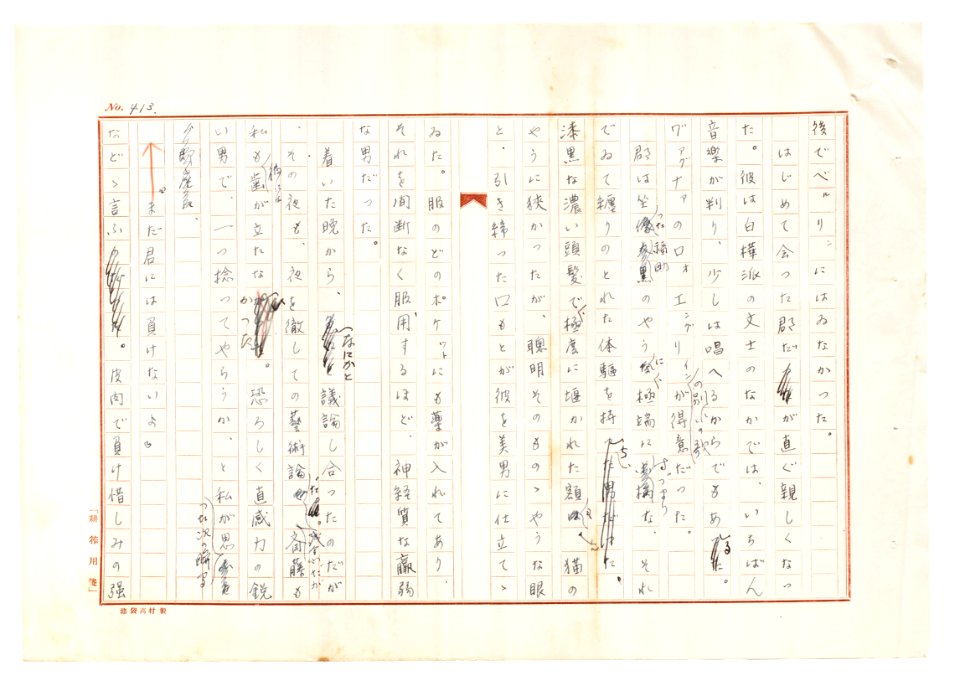 No. 413.
後でベルリンにはゐなかった。
はじめて会った郡だが直ぐ親しくなっ
た。彼は白樺派の文士のなかでは、いちばん
音楽が判り、少しは唱へるからでもある。
ヴァグナァのロォエングリインの別れの歌が得意だった。
郡はのやうに極端に な、それ
でゐて纏りのとれた体躯を持ち、
漆黒な濃い頭髪で極度に堰かれた額、猫の
やうに狭かったが、聰明そのものゝやうな眼
と、引き締った口もとが彼を美男に仕立てゝ
ゐた。服のどのポケットにも薬が入れてあり、
それを間断なく服用するほど、神経質な羸弱
な男だった。
着いた晩から、なにかと議論し合ったのだが
、その夜も、夜を徹しての藝術論だった。斎藤も
私も歯が立たなかった。恐ろしく直感力の鋭
い男で、一つ捻ってやらうか、と私が思った次の瞬間
まだ君には負けないよ。
などゝ言ふ。皮肉で負け惜しみの強
「耕雑用箋」
池袋高村製